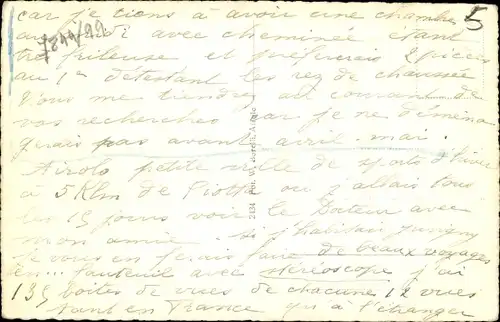 car je tiens à avoir une chambre 5
au midi avec cheminée étant
7844/22
très frileuse et préférerais 2 pièces
au 1er détestant les rez de chaussée
Vous me tiendrez au courant de
vos recherches car je ne déména
gerais pas avant avril - mai.
Airolo petite ville de sports d'hiver
à 5 Klm de Piotta où j'allais tous
les 15 jours voir le Docteur avec
mon amie. Si j'habitais
je vous en ferais faire de beaux voyages
en... fauteuil avec stéréoscope j'ai
135 boites de vues de chacune 12 vues
tant en France qu'à l'étranger
2134 Phot. W.